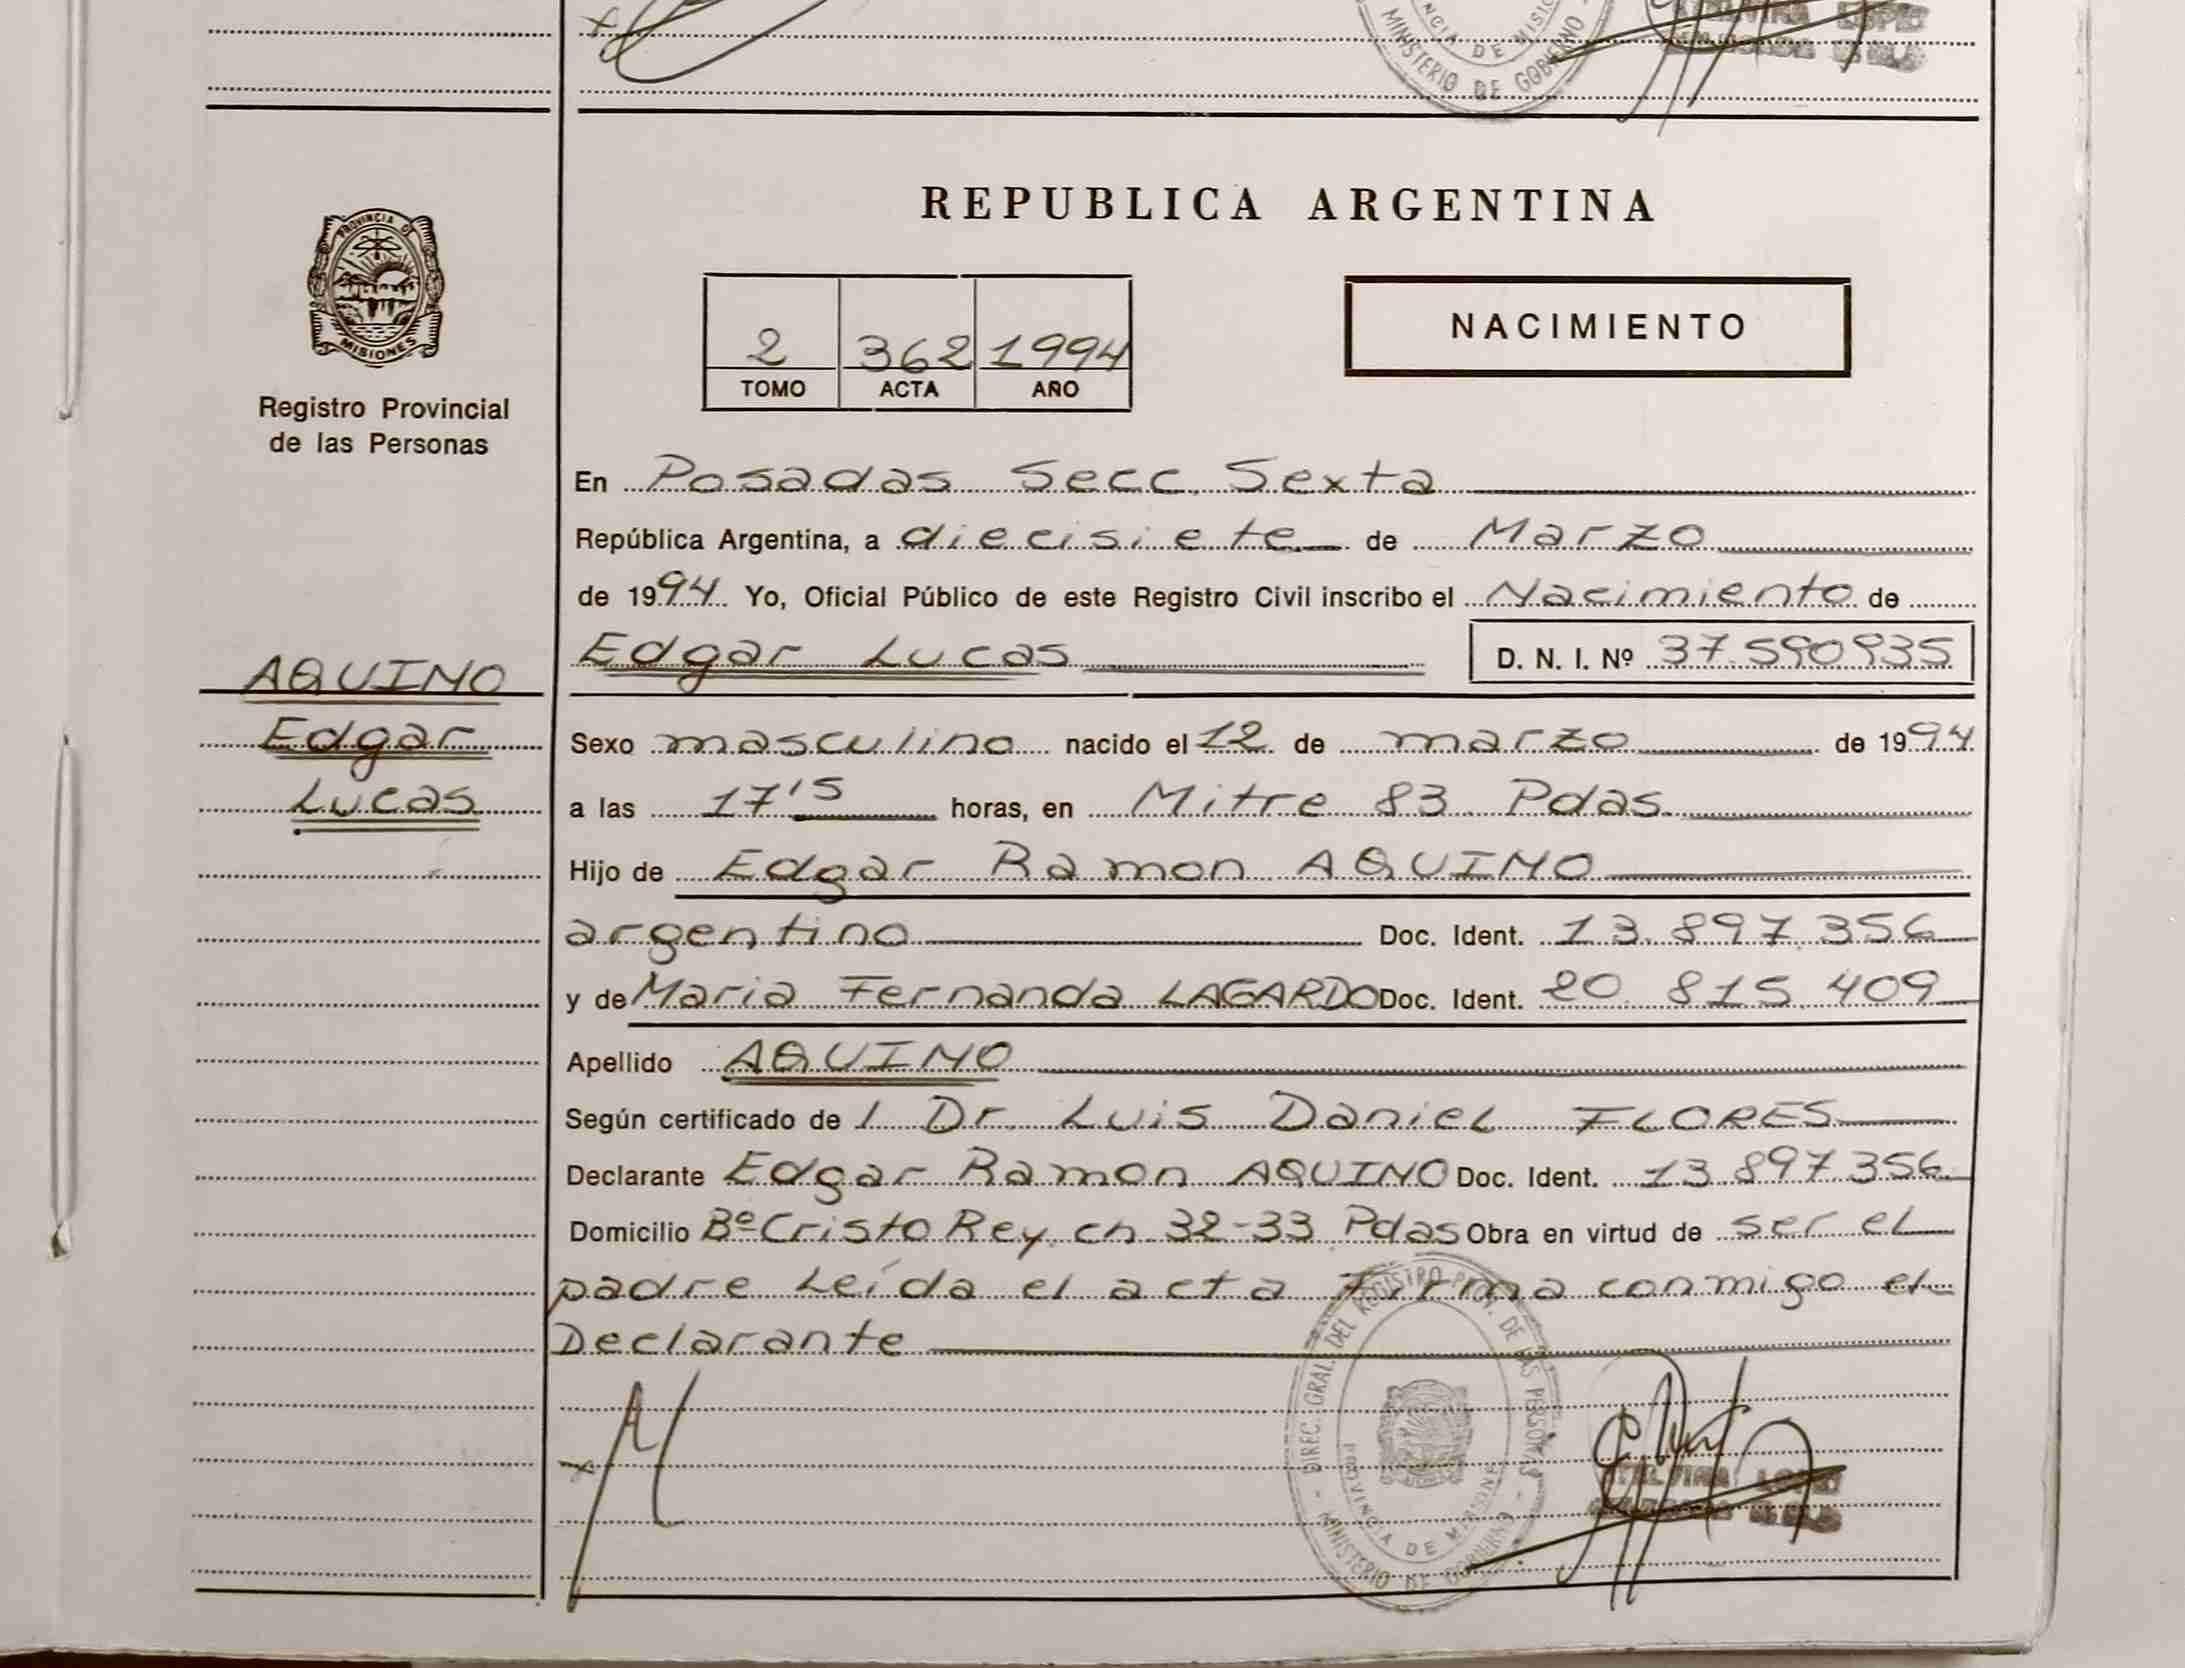 MINISTERIO DE GOBIERNO
REPUBLICA ARGENTINA
PROVINCIA DE
MISIONES
Registro Provincial
de las Personas
2 362 1994
TOMO ACTA AÑO
NACIMIENTO
En Posadas Secc. Sexta
República Argentina, a diecisiete de Marzo
de 1994 Yo, Oficial Público de este Registro Civil inscribo el Nacimiento de
Edgar Lucas D. N. I. Nº 37.590935
AQUINO
Edgar
Lucas
Sexo masculino nacido el 12 de marzo de 1994
a las 17'5 horas, en Mitre 83 Pdas.
Hijo de Edgar Ramon AQUINO
argentino Doc. Ident. 13.897.356
y de Maria Fernanda LAGARDO Doc. Ident. 20.815.409
Apellido AQUINO
Según certificado de l Dr. Luis Daniel FLORES
Declarante Edgar Ramon AQUINO Doc. Ident. 13.897.356
Domicilio Bº Cristo Rey ch 32-33 Pdas Obra en virtud de ser el
padre Leída el acta Firma conmigo el
Declarante
DIREC. GRAL. DEL REGISTRO PROV. DE LAS PERSONAS
PROVINCIA DE MISIONES
MINISTERIO DE GOBIERNO
LOPEZ